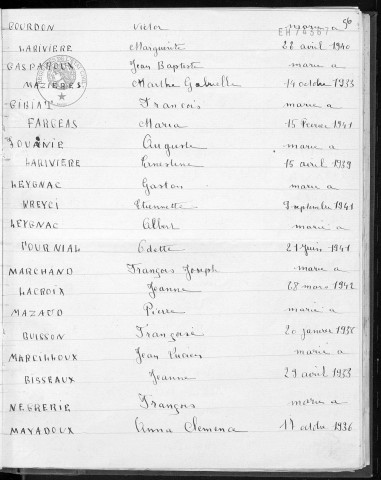 96
GOURDON Victor marié a
LARIVIÈRE Marguerite 22 avril 1940
GASPAROUX Jean Baptiste marié a
MAZIÈRES Marthe Gabrielle 14 octobre 1933
GIBIAT François marié a
FARGEAS Maria 15 Février 1941
JOUANIE Auguste marié a
LARIVIÈRE Ernestine 15 avril 1939
LEYGNAC Gaston marié a
Etiennette 9 septembre 1941
LEYGNAC Albert marié a
FOURNIAL Odette 21 juin 1941
MARCHAND François Joseph marié a
LACROIX Jeanne 28 mars 1942
MAZAUD Pierre marié a
BUISSON Françoise 20 janvier 1936
MARCILLOUX Jean Lucien marié a
BISSEAUX Jeanne 29 avril 1933
NEGRERIE François marié a
MAYADOUX Anna Clemena 17 octobre 1936